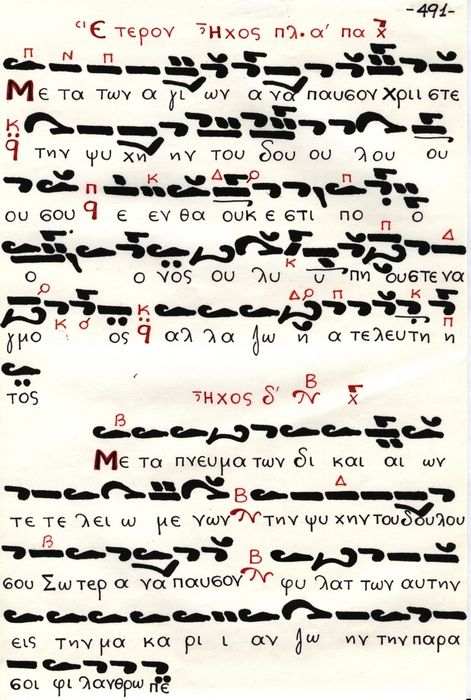 -491-
Ετερον Ἦχος πλ. α' πα
Με τα των α γι ων α να παυσον χριι στε
την ψυ χη ην του δου ου λου ου
ου σου ε εν θα ουκ ε στι πο ο
ο ο νος ου λυ υ πη ου στε να
γμο ος αλ λα ζω η α τελευ τη η
τος
Ἦχος δ'
Με τα πνευμα των δι και αι ων
τε τε λει ω με νων την ψυ χην του δουλου
σου Σωτερ α να παυσον φυ λατ των αυτην
εις την μα κα ρι ι αν ζω ην την παρα
σοι φι λανθρω πε